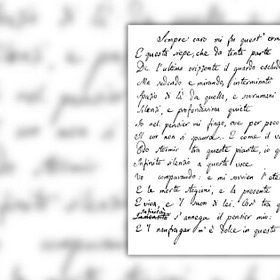 Sempre caro mi fu quest'
E questa siepe, che da tanta parte
De l'ultimo orizzonte il guardo esclude
Ma sedendo e mirando, interminato
Spazio di là da quello, e sovrumani
Silenzi, e profondissima quiete
Io nel pensier mi fingo, ove per poco
Il cor non si spaura. E come il
Odo stormir tra queste piante, io
Infinito silenzio a questa voce
Vo comparando: e mi sovvien l'
E le morte stagioni, e la presente
E viva, e 'l suon di lei. Così tra
s'annega il pensier mio:
E 'l naufragar m'è dolce in questo